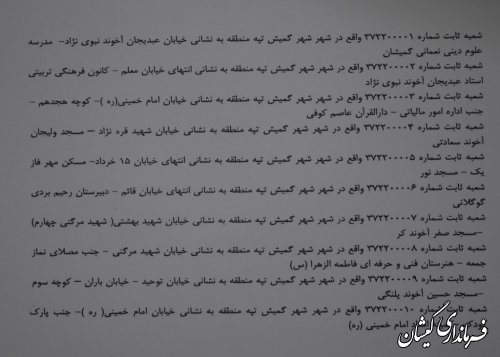 شعبه ثابت شماره ۳۷۲۲۰۰۰۰۱ واقع در شهر شهر گمیش تپه منطقه به نشانی خیابان عبدیجان آخوند نبوی نژاد- مدرسه
علوم دینی نعمانی گمیشان
شعبه ثابت شماره ۳۷۲۲۰۰۰۰۲ واقع در شهر شهر گمیش تپه منطقه به نشانی انتهای خیابان معلم - کانون فرهنگی تربیتی
استاد عبدیجان آخوند نبوی نژاد
شعبه ثابت شماره ۳۷۲۲۰۰۰۰۳ واقع در شهر شهر گمیش تپه منطقه به نشانی خیابان امام خمینی(ره )- کوچه هجدهم -
جنب اداره امور مالیاتی - دارالقرآن عاصم کوفی
شعبه ثابت شماره ۳۷۲۲۰۰۰۰۴ واقع در شهر شهر گمیش تپه منطقه به نشانی خیابان شهید قره نژاد – مسجد ولیجان
آخوند سعادتی
شعبه ثابت شماره ۳۷۲۲۰۰۰۰۵ واقع در شهر شهر گمیش تپه منطقه به نشانی انتهای خیابان ۱۵ خرداد- مسکن مهر فاز
یک - مسجد نور
شعبه ثابت شماره ۳۷۲۲۰۰۰۰۶ واقع در شهر شهر گمیش تپه منطقه به نشانی انتهای خیابان قائم - دبیرستان رحیم بردی
گوگلانی
شعبه ثابت شماره ۳۷۲۲۰۰۰۰۷ واقع در شهر شهر گمیش تپه منطقه به نشانی خیابان شهید بهشتی( شهید مرگنی چهارم)
-مسجد صفر آخوند کر
شعبه ثابت شماره ۳۷۲۲۰۰۰۰۸ واقع در شهر شهر گمیش تپه منطقه به نشانی خیابان شهید مرگنی - جنب مصلای نماز
جمعه - هنرستان فنی و حرفه ای فاطمه الزهرا (س)
شعبه ثابت شماره ۳۷۲۲۰۰۰۰۹ واقع در شهر شهر گمیش تپه منطقه به نشانی خیابان توحید - خیابان باران – کوچه سوم
-مسجد حسین آخوند پلنگی
شعبه ثابت شماره ۳۷۲۲۰۰۰۱۰ واقع در شهر شهر گمیش تپه منطقه به نشانی خیابان امام خمینی( ره )- جنب پارک
امام خمینی (ره)
فرمانداری گمیشان